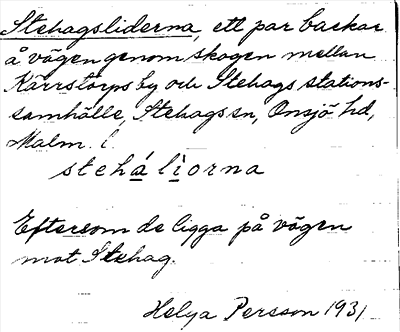 Stehagsliderna, ett par backar
å vägen genom skogen mellan
Kärrstorps by och Stehags stations-
samhälle, Stehags sn, Onsjö hd,
Malm. l.
stehá lìorna
Eftersom de ligga på vägen
mot Stehag.
Helga Persson 1931